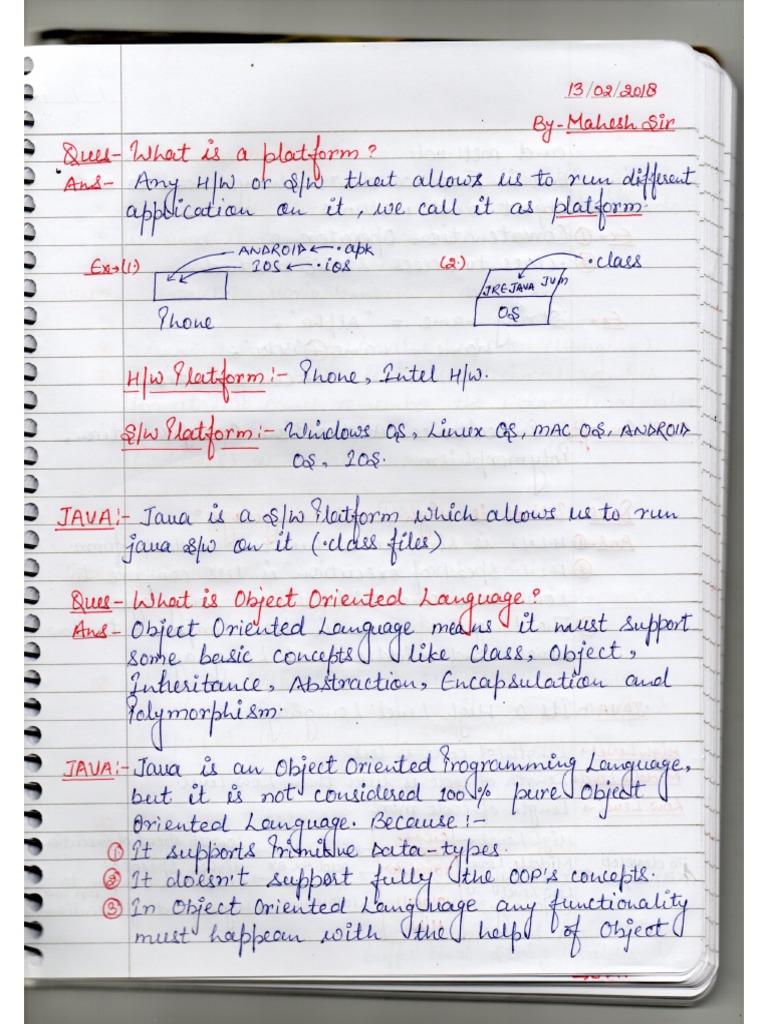 13/02/2018
By- Mahesh Sir
Ques- What is a platform?
Ans- Any H/W or S/W that allows us to run different
application on it, we call it as platform.
Ex→(1.) ANDROID ← .apk
IOS ← .ios
Phone
(2.) .class
JRE JAVA JVM
OS
H/W Platform:- Phone, Intel H/W.
S/W Platform:- Windows OS, Linux OS, MAC OS, ANDROID
OS, IOS.
JAVA:- Java is a S/W Platform which allows us to run
java S/W on it (.class files)
Ques- What is Object Oriented Language?
Ans- Object Oriented Language means it must support
some basic concepts like Class, Object,
Inheritance, Abstraction, Encapsulation and
Polymorphism.
JAVA:- Java is an Object Oriented Programming Language,
but it is not considered 100% pure Object
Oriented Language. Because:-
① It supports Primitive Data-types.
② It doesn't support fully the OOP's concepts.
③ In Object Oriented Language any functionality
must happean with the help of Object